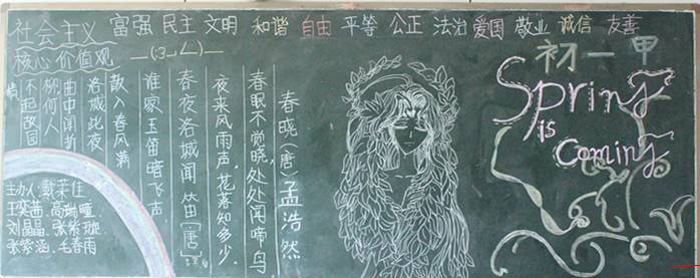 社会主义 富强 民主 文明 和谐 自由 平等 公正 法治 爱国 敬业 诚信 友善
核心价值观
初一甲
Spring
is
coming
春晓(唐)孟浩然
春眠不觉晓，处处闻啼鸟。
夜来风雨声，花落知多少。
春夜洛城闻笛[唐]
谁家玉笛暗飞声，
散入春风满
洛城此夜
曲中闻折
柳何人
不起故园
情
主办人:
王奕茜、高瑞
刘晶晶、张紫璇
张紫涵、毛春雨